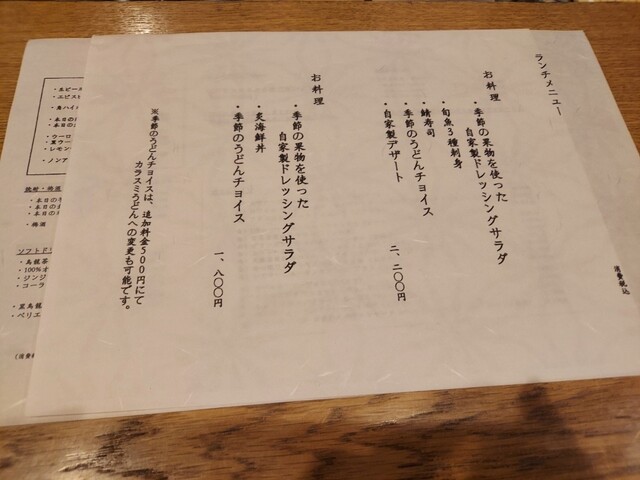 ランチメニュー
消費税込
お料理
・季節の果物を使った
自家製ドレッシングサラダ
・旬魚3種刺身
・鯖寿司
・季節のうどんチョイス
・自家製デザート
二、二〇〇円
お料理
・季節の果物を使った
自家製ドレッシングサラダ
・炙海鮮丼
・季節のうどんチョイス
一、八〇〇円
※季節のうどんチョイスは、追加料金500円にて
カラスミうどんへの変更も可能です。
・生ビー
・エビス
・角ハイ
・本日の
・本日の
・ウーロ
・黒ウー
・レモン
・ノンア
焼酎・梅酒
・本日の
・本日の
・本日の
・梅酒
ソフトド
・烏龍茶
・100%オ
・ジンジ
・コーラ
・黒烏龍
・ペリエ